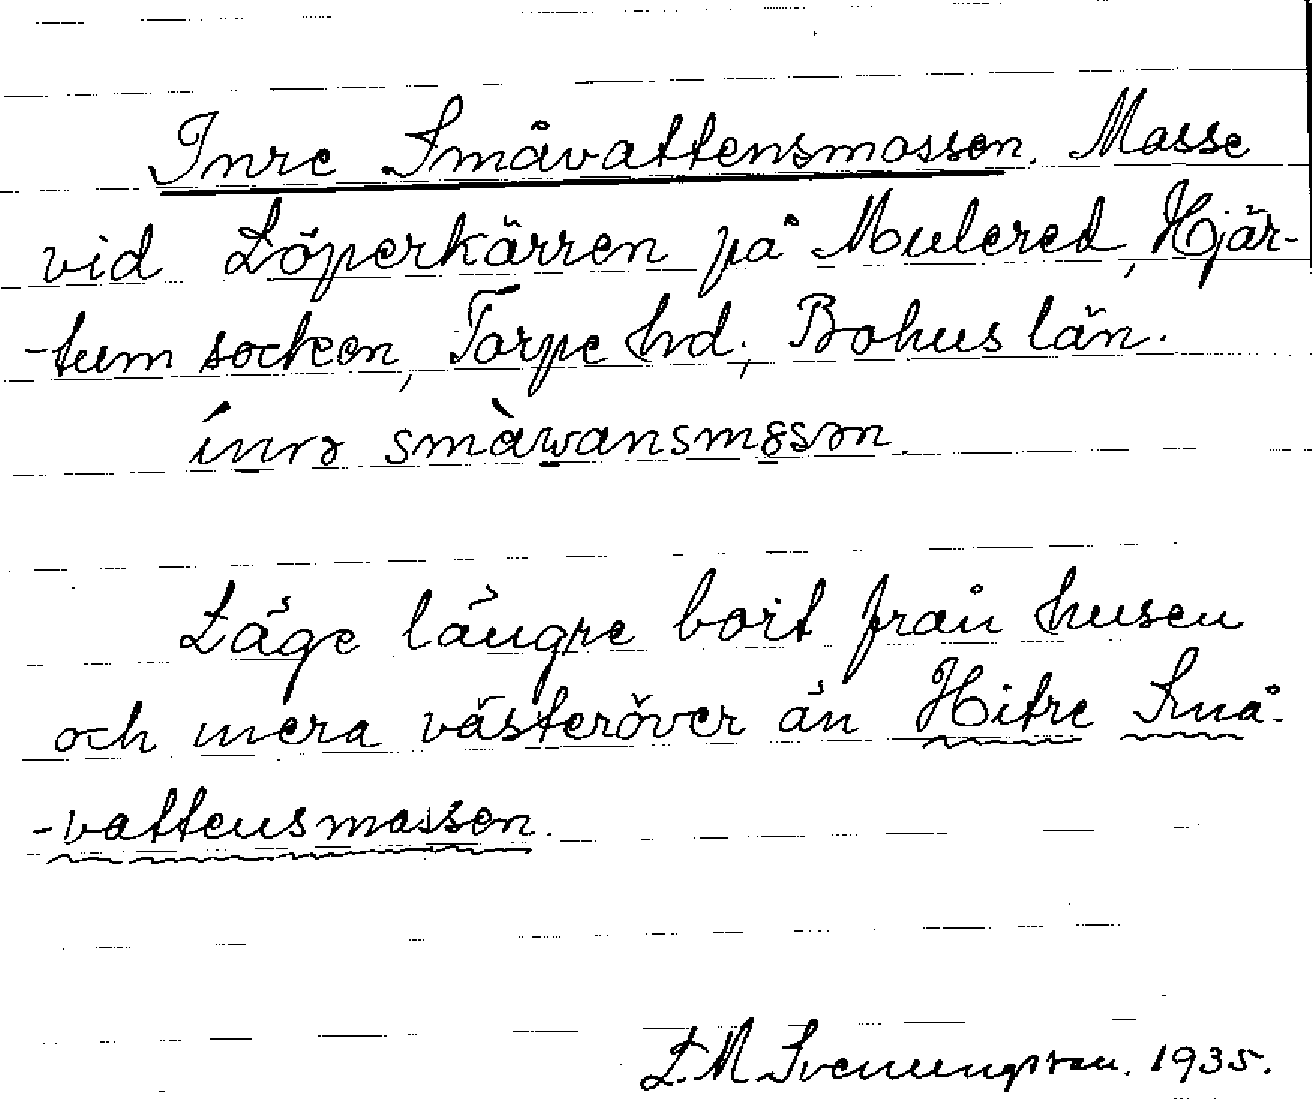 Inre Småvattensmossen. Mosse
vid Löperkärren på Mulered, Hjär-
-tum socken, Torpe hrd., Bohus län.
ínrə småwansmɷsən.
Läge längre bort från husen
och mera västeröver än Hitre Små-
-vattensmossen.
L.M. Svenungsson. 1935.